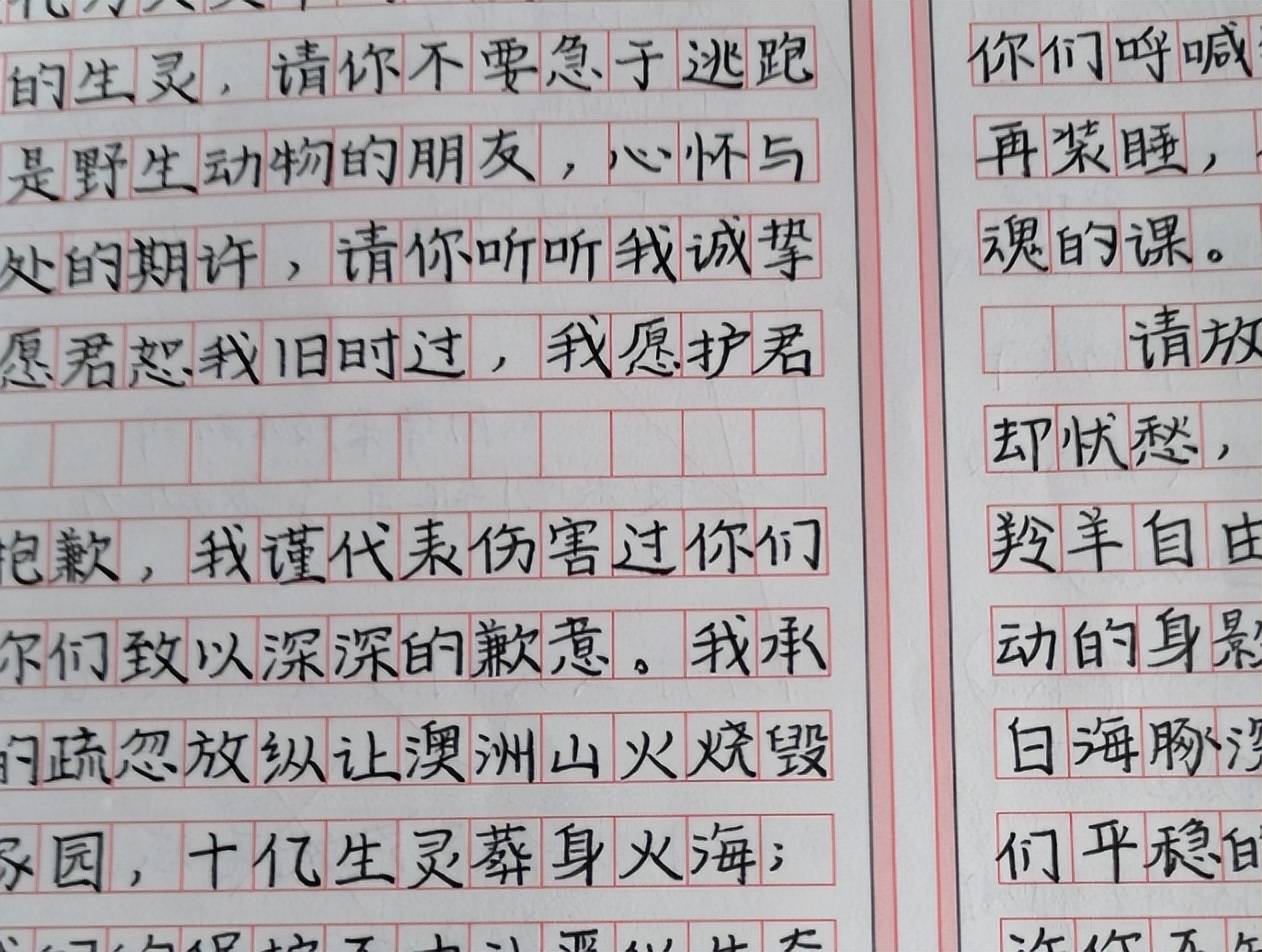 的生灵，请你不要急于逃跑
是野生动物的朋友，心怀与
处的期许，请你听听我诚挚
愿君恕我旧时过，我愿护君
抱歉，我谨代表伤害过你们
你们致以深深的歉意。我承
的疏忽放纵让澳洲山火烧毁
家园，十亿生灵葬身火海；
你们呼喊
再装睡，
魂的课。
请放
却忧愁，
羚羊自由
动的身影
白海豚深
们平稳的